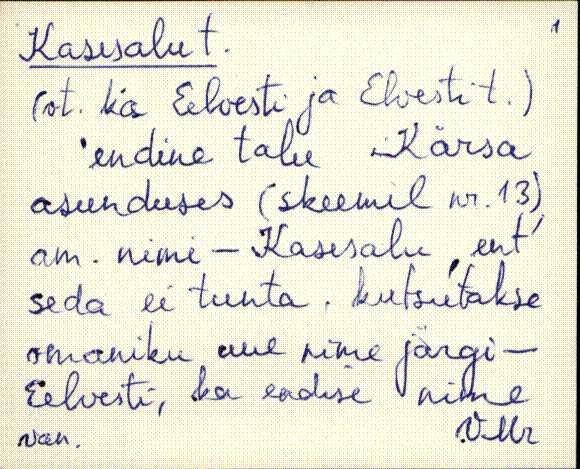 1
Kasesalu t.
(vt. ka Eelvesti ja Elvesti t.)
endine talu - Kärsa
asunduses (skeemil nr. 13)
am. nimi - Kasesalu, ent
seda ei tunta. kutsutakse
omaniku uue nime järgi -
Eelvesti, ka endise nime
van. V. Mr